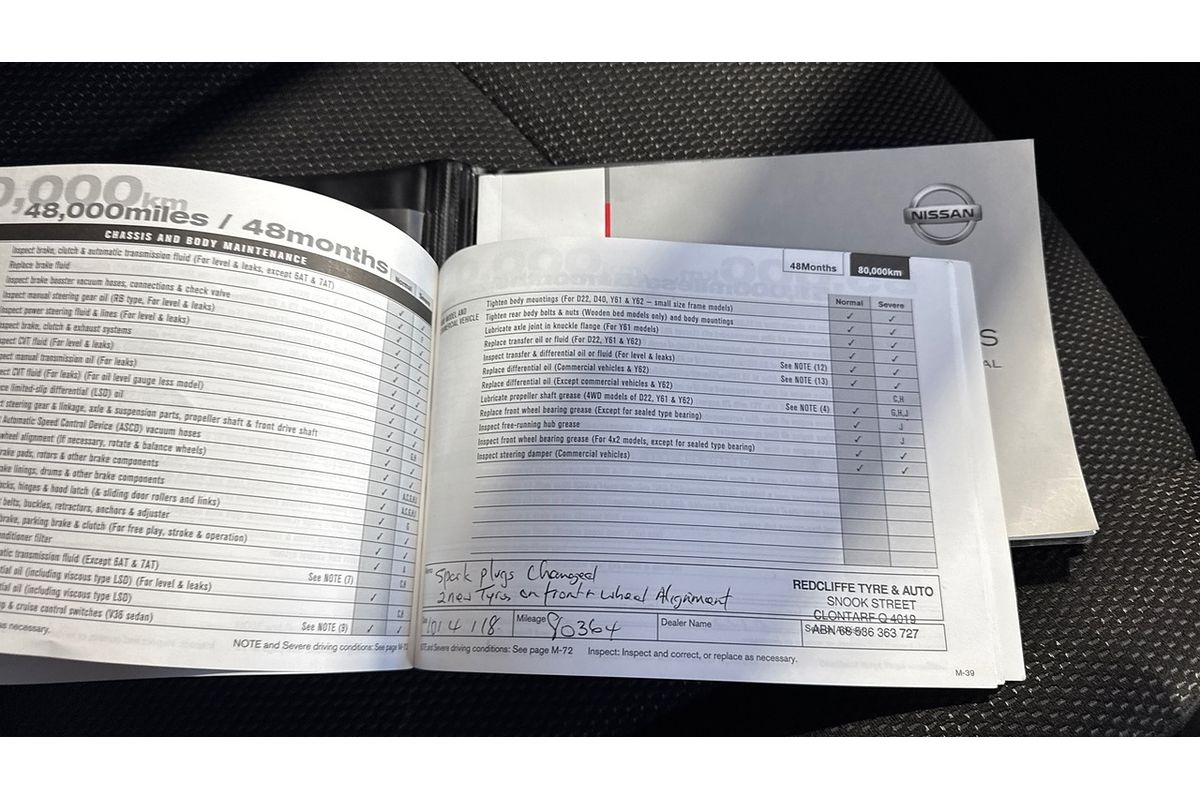 0,000km
48,000miles / 48months
CHASSIS AND BODY MAINTENANCE
Normal
Inspect brake, clutch & automatic transmission fluid (For level & leaks, except 6AT & 7AT)
Replace brake fluid
Inspect brake booster vacuum hoses, connections & check valve
Inspect manual steering gear oil (RB type, For level & leaks)
Inspect power steering fluid & lines (For level & leaks)
spect brake, clutch & exhaust systems
spect CVT fluid (For level & leaks)
pect manual transmission oil (For leaks)
ect CVT fluid (For leaks) (For oil level gauge less model)
ce limited-slip differential (LSD) oil
ct steering gear & linkage, axle & suspension parts, propeller shaft & front drive shaft
t Automatic Speed Control Device (ASCD) vacuum hoses
wheel alignment (If necessary, rotate & balance wheels)
rake pads, rotors & other brake components
ake linings, drums & other brake components
ocks, hinges & hood latch (& sliding door rollers and links)
belts, buckles, retractors, anchors & adjuster
brake, parking brake & clutch (For free play, stroke & operation)
nditioner filter
atic transmission fluid (Except 6AT & 7AT)
tial oil (including viscous type LSD) (For level & leaks) See NOTE (7)
ial oil (including viscous type LSD)
& cruise control switches (V36 sedan) See NOTE (9)
as necessary.
NOTE and Severe driving conditions: See page M-72
NISSAN
S
AL
48Months 80,000km
Normal Severe
MODEL AND
VEHICLE
Tighten body mountings (For D22, D40, Y61 & Y62 – small size frame models) ✓ ✓
Tighten rear body bolts & nuts (Wooden bed models only) and body mountings ✓ ✓
Lubricate axle joint in knuckle flange (For Y61 models) ✓ ✓
Replace transfer oil or fluid (For D22, Y61 & Y62) ✓ ✓
Inspect transfer & differential oil or fluid (For level & leaks) ✓ ✓
Replace differential oil (Commercial vehicles & Y62) See NOTE (12) ✓ ✓
Replace differential oil (Except commercial vehicles & Y62) See NOTE (13) C,H
Lubricate propeller shaft grease (4WD models of D22, Y61 & Y62) ✓ G,H,J
Replace front wheel bearing grease (Except for sealed type bearing) See NOTE (4) ✓ J
Inspect free-running hub grease ✓ J
Inspect front wheel bearing grease (For 4x2 models, except for sealed type bearing) ✓ ✓
Inspect steering damper (Commercial vehicles) ✓ ✓
Spark plugs Changed
2 new Tyres on front + wheel Alignment
10/4/18 Mileage 90364 Dealer Name
REDCLIFFE TYRE & AUTO
SNOOK STREET
CLONTARF Q 4019
ABN 68 536 363 727
NOTE and Severe driving conditions: See page M-72 Inspect: Inspect and correct, or replace as necessary.
M-39